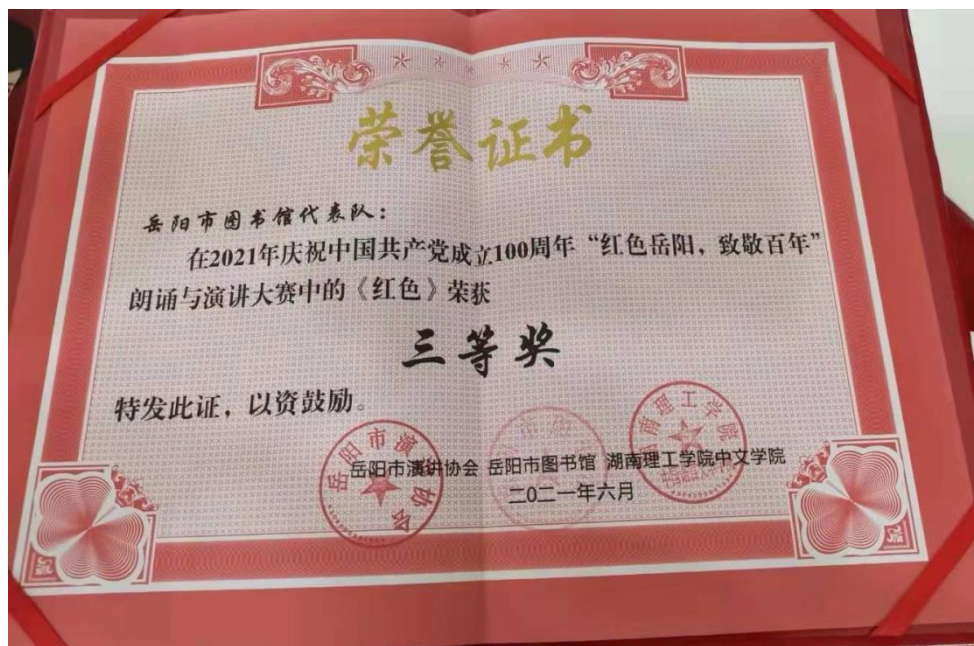 荣誉证书
岳阳市图书馆代表队：
在2021年庆祝中国共产党成立100周年“红色岳阳，致敬百年”
朗诵与演讲大赛中的《红色》荣获
三等奖
特发此证，以资鼓励。
岳阳市演讲协会 岳阳市图书馆 湖南理工学院中文学院
二〇二一年六月
岳阳市演讲协会